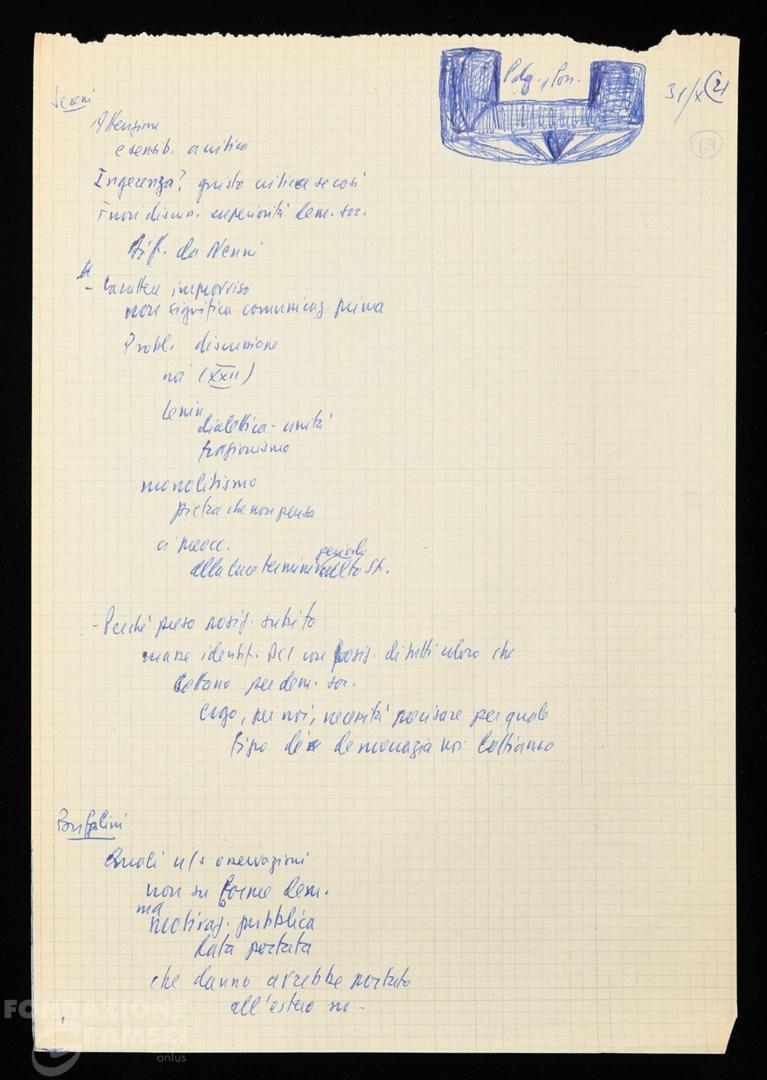 31/X (2)
63
Sereni
Attenzione
e sensib. a critica
Ingerenza? giusto critica se così
Fuori discus. superiorità dem. soc.
Diff. da Nenni
- Carattere improvviso
non significa comunicaz. prima
Probl. discussione
noi (XXII)
Lenin
dialettica - unità
frazionismo
monolitismo
pietra che non pensa
ci preocc.
pericolo
alla luce termini
- Perché preso posiz. subito
masse identif. PCI con posiz. di tutti coloro che
lottano per dem. soc.
ergo, per noi, necessità precisare per quale
tipo di democrazia noi lottiamo
Bufalini
Quali n/s osservazioni
non su forme dem.
ma
motivaz. pubblica
data portata
che danno avrebbe portato
all'estero no -
FONDAZIONE
GRAMSCI
onlus